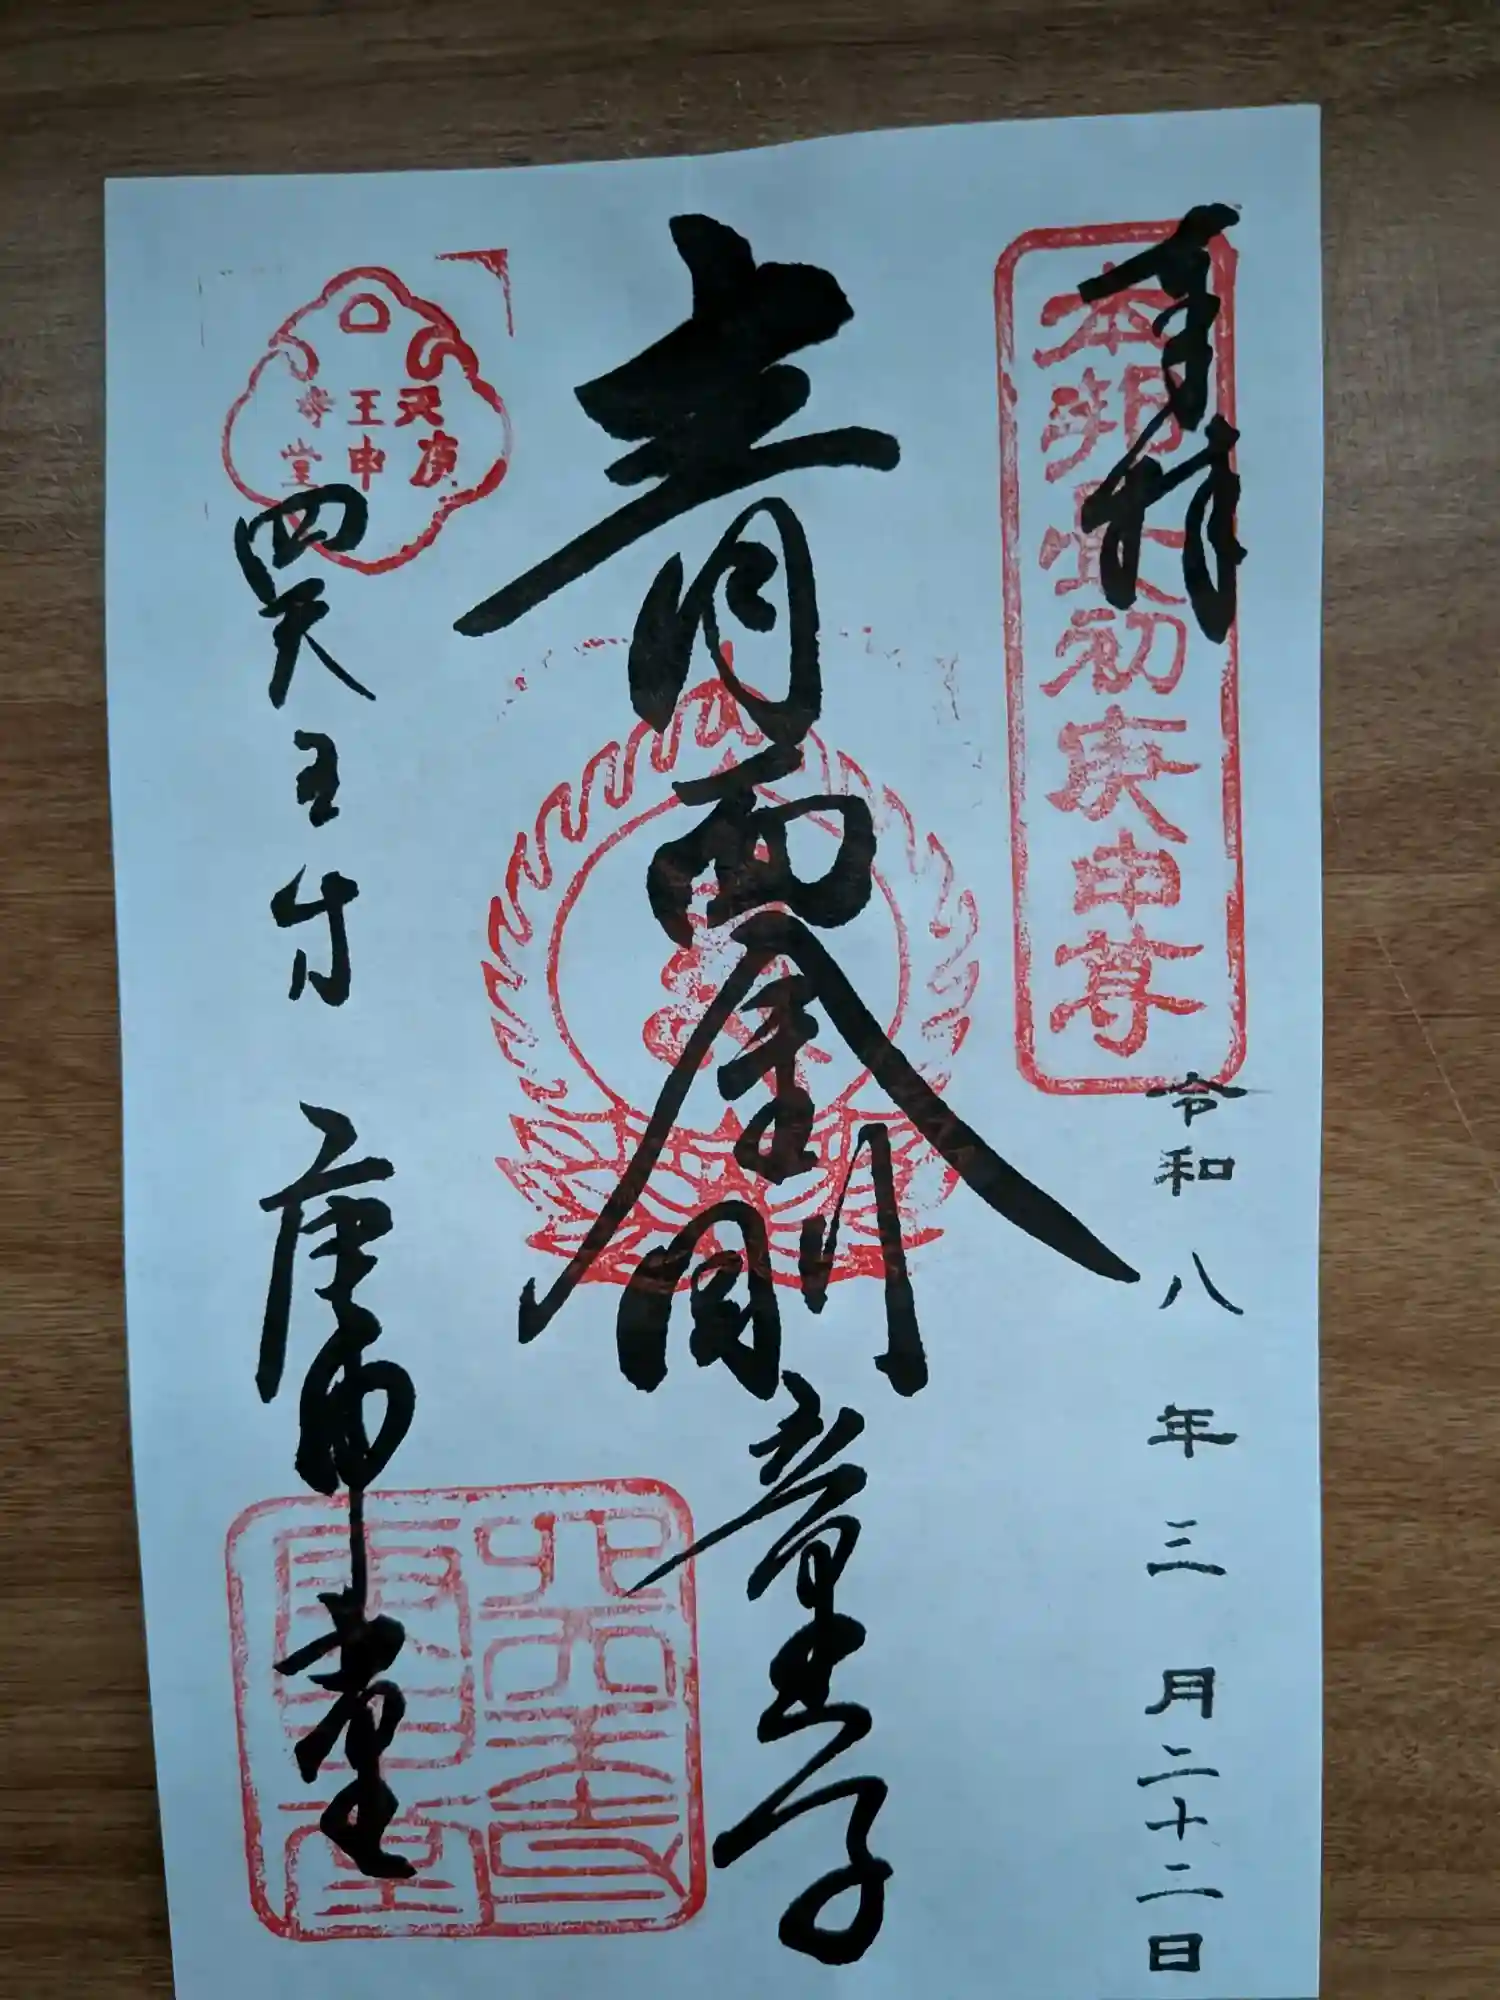 奉拝
本邦最初庚申尊
令和八年三月二十二日
青面金剛童子
四天王寺
庚申堂
天王寺
庚申堂
四天王寺
庚申堂